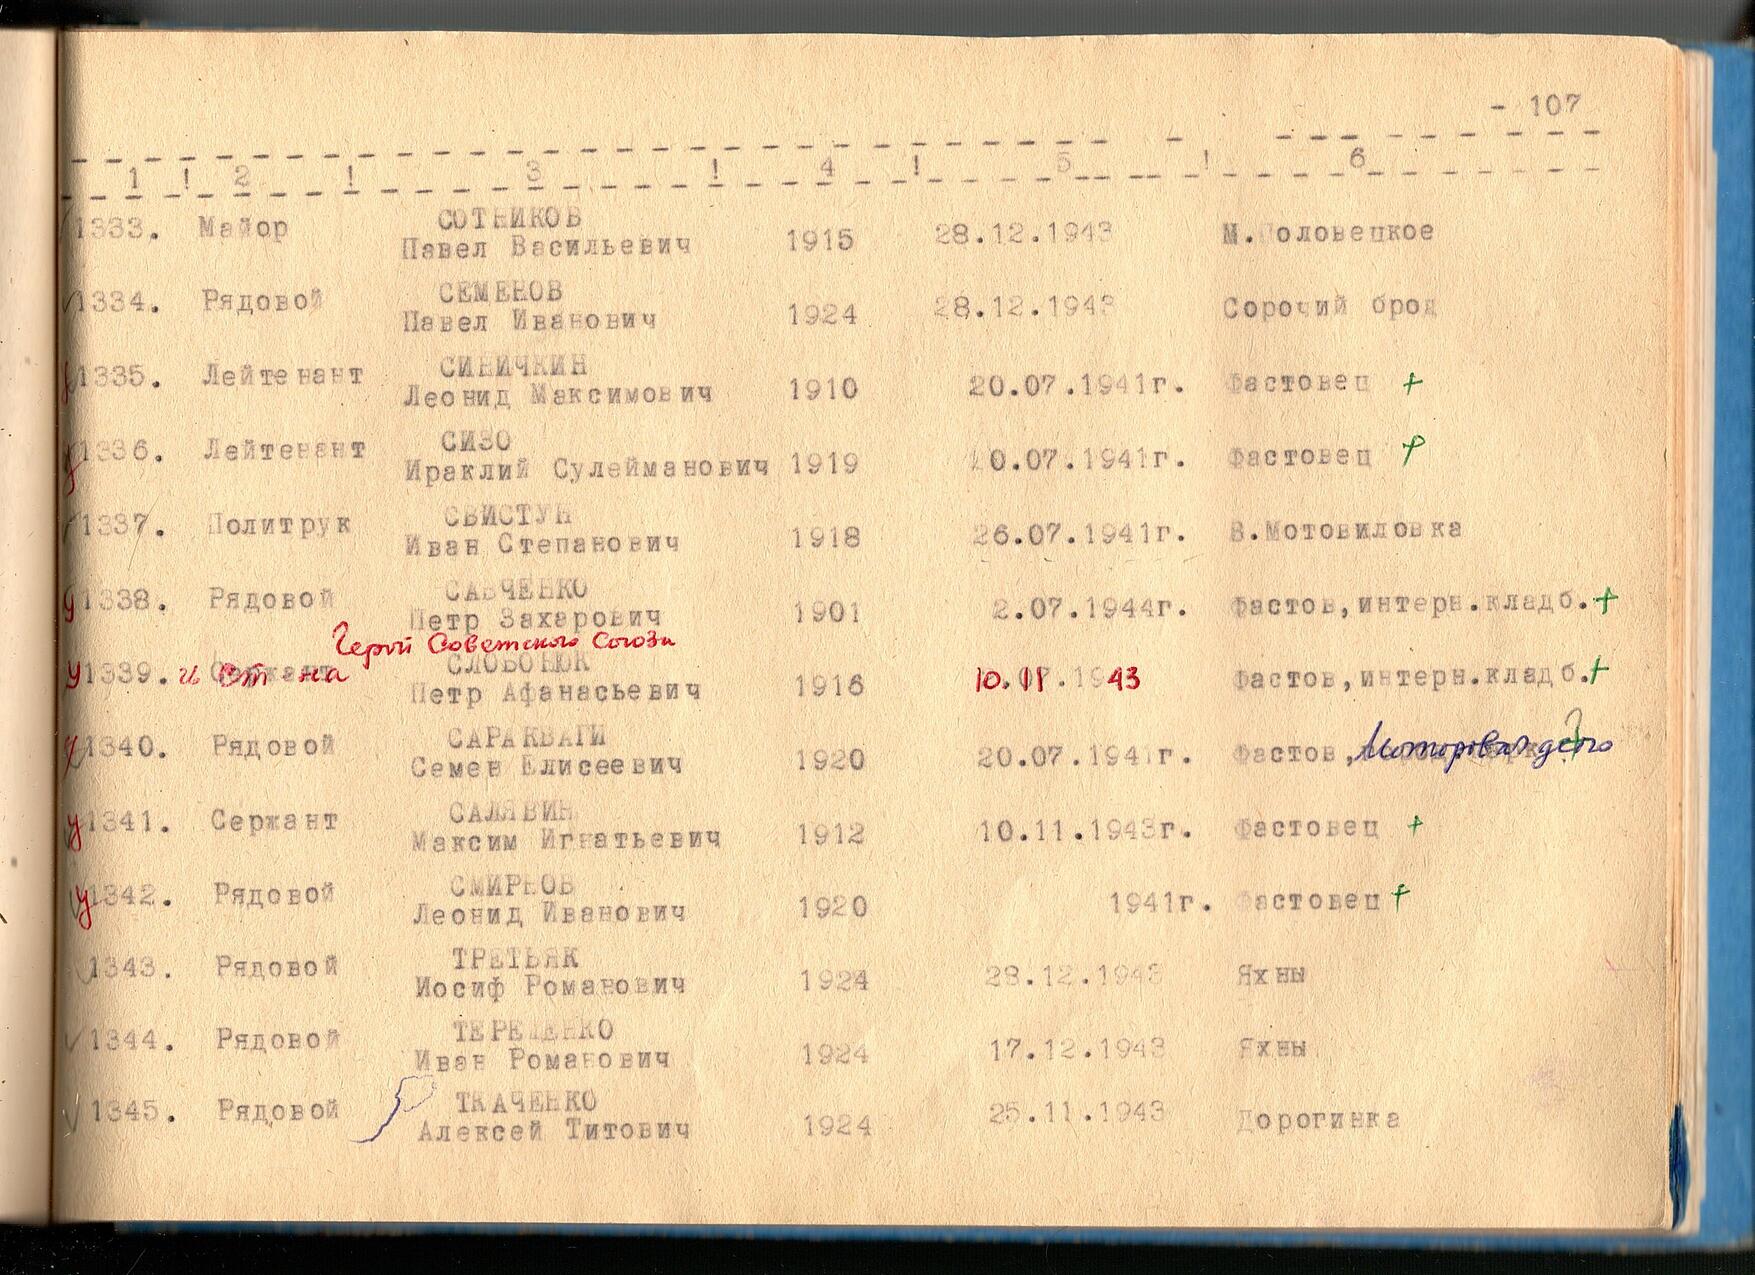 - 107
1 ! 2 ! 3 ! 4 ! 5 ! 6
1333. Майор СОТНИКОВ
Павел Васильевич 1915 28.12.1943 М.Половецкое
1334. Рядовой СЕМЕНОВ
Павел Иванович 1924 28.12.1943 Сорочий брод
1335. Лейтенант СИНИЧКИН
Леонид Максимович 1910 20.07.1941г. Фастовец +
1336. Лейтенант СИЗО
Ираклий Сулейманович 1919 20.07.1941г. Фастовец +
1337. Политрук СВИСТУН
Иван Степанович 1918 26.07.1941г. В.Мотовиловка
у 1338. Рядовой САВЧЕНКО
Петр Захарович 1901 2.07.1944г. Фастов,интерн.кладб. +
Герой Советского Союза
у 1339. Сержант СЛОБОНЮК
Петр Афанасьевич 1916 10.11.1943 Фастов,интерн.кладб. +
у 1340. Рядовой САРАКВАГИ
Семен Елисеевич 1920 20.07.1941г. Фастов,
у 1341. Сержант САЛЯВИН
Максим Игнатьевич 1912 10.11.1943г. Фастовец +
у 1342. Рядовой СМИРНОВ
Леонид Иванович 1920 1941г. Фастовец +
1343. Рядовой ТРЕТЬЯК
Иосиф Романович 1924 28.12.1943 Яхны
1344. Рядовой ТЕРЕЩЕНКО
Иван Романович 1924 17.12.1943 Яхны
1345. Рядовой ТКАЧЕНКО
Алексей Титович 1924 25.11.1943 Дорогинка